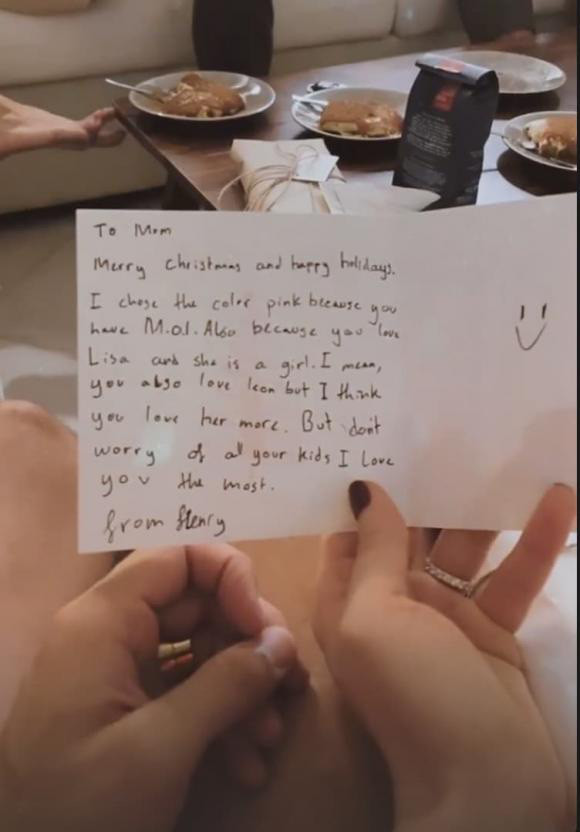 To Mom
Merry Christmas and happy holidays.
I chose the color pink because you
have M.O.I. Also because you love
Lisa and she is a girl. I mean,
you also love leon but I think
you love her more. But don't
worry of all your kids I Love
you the most.
from Henry